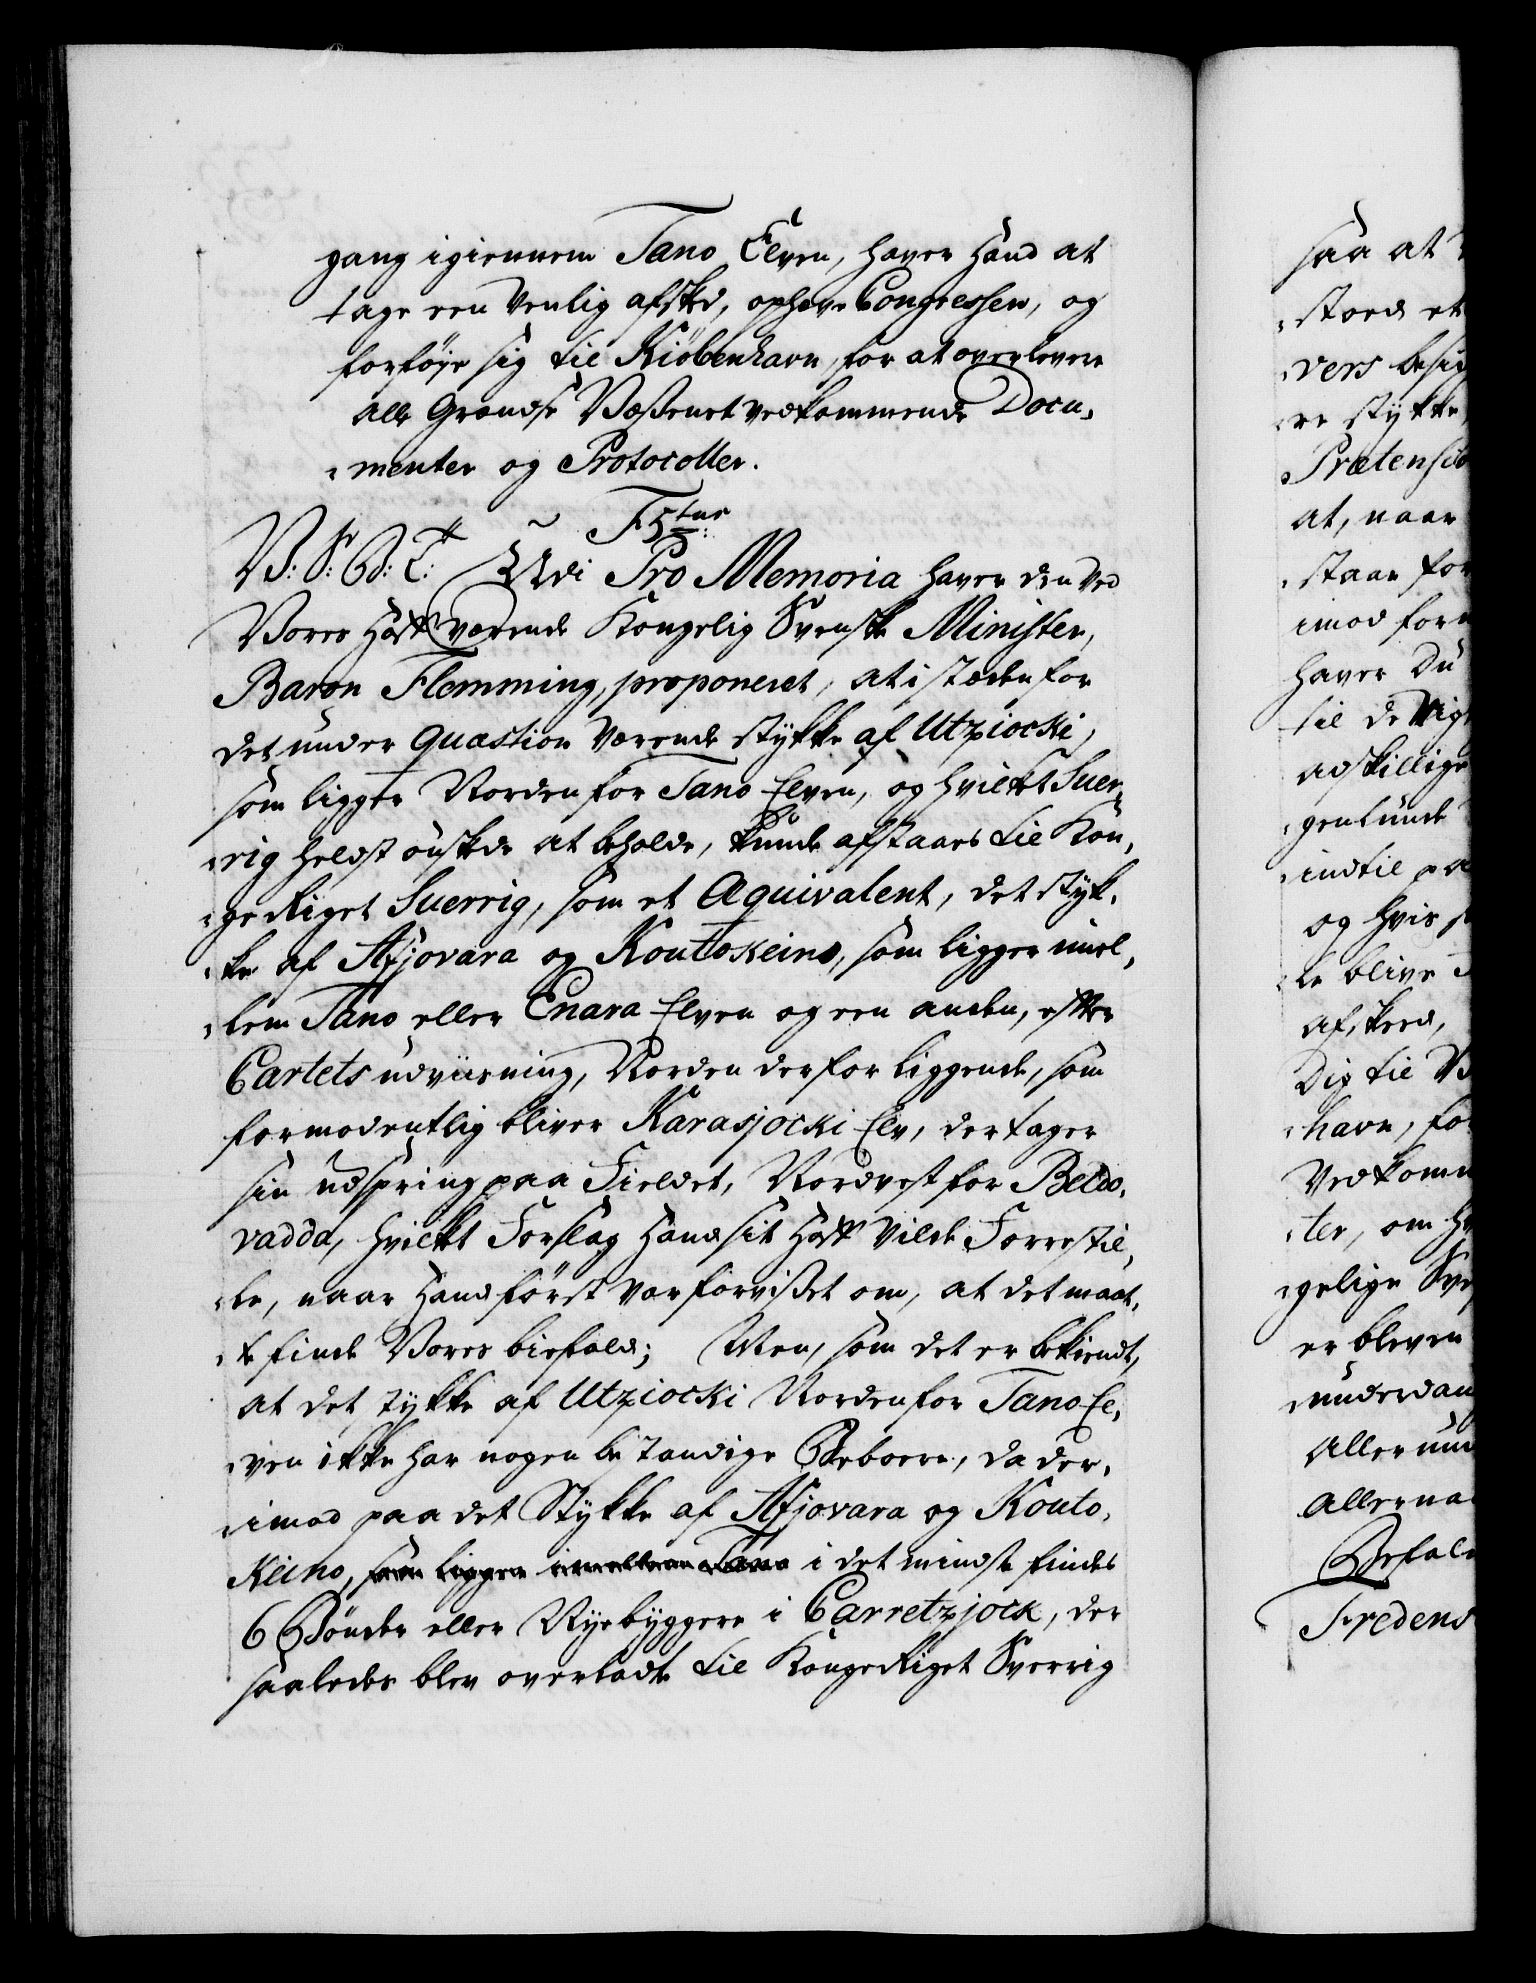 gang igiennem Tano Elven, haver Hand at
tage een Venlig afsked, ophæve Congressen, og
forföje sig til Kiöbenhavn, for at overlevere
alle Grændse Væsenet vedkommende Docu-
menter og Protocoller.
F5tus
V: S: G: T: Udi Pro Memoria haver den ved
Vores Hoff værende Kongelig Svenske Minister,
Baron Flemming, proponeret, at i stæden for
det under Quæstion værende stykke af Utziocki,
som ligger Norden for Tano Elven, og hvilket Suer-
rig heldst önskede at beholde, kunde afstaaes til Kon-
geRiget Suerrig, som et Æquivalent, det styk-
ke af Afjovara og Koutokeino, som ligger imel-
lem Tano eller Enara Elven og een anden, efter
Cartets udviisning, Norden derfor liggende, som
formodentlig bliver Karasjocki Elv, der tager
sin Udspring paa Fieldet, Nordvest for Beldo-
vadda, hvilket Forslag Hand sit Hoff vilde Forrestil-
le, naar Hand först var forvisset om, at det maat-
te finde Vores biefald; Men, som det er bekiendt,
at det stykke af Utziocki Norden for Tano El-
ven ikke har nogen bestandige Beboere, da der-
imod paa det Stykke af Afjovara og Kouto-
Keino, som ligger imellem Tano i det mindste findes
6 Bönder eller Nyebyggere i Carretzjock, der
saaledes blev overladt til KongeRiget Sverrig
saa at
stoed et
vers besig
re stykke
Prætensio
at, naar
staar for
imod for
haver Du
til de
adskillige
genlunde
indtil
og hvis
le blive
afskeed,
Dig til
havn, fo
Vedkomm
ter, om
gelige Sve
er bleven
underdan
Allerun
Allerna
Befal
Fredens